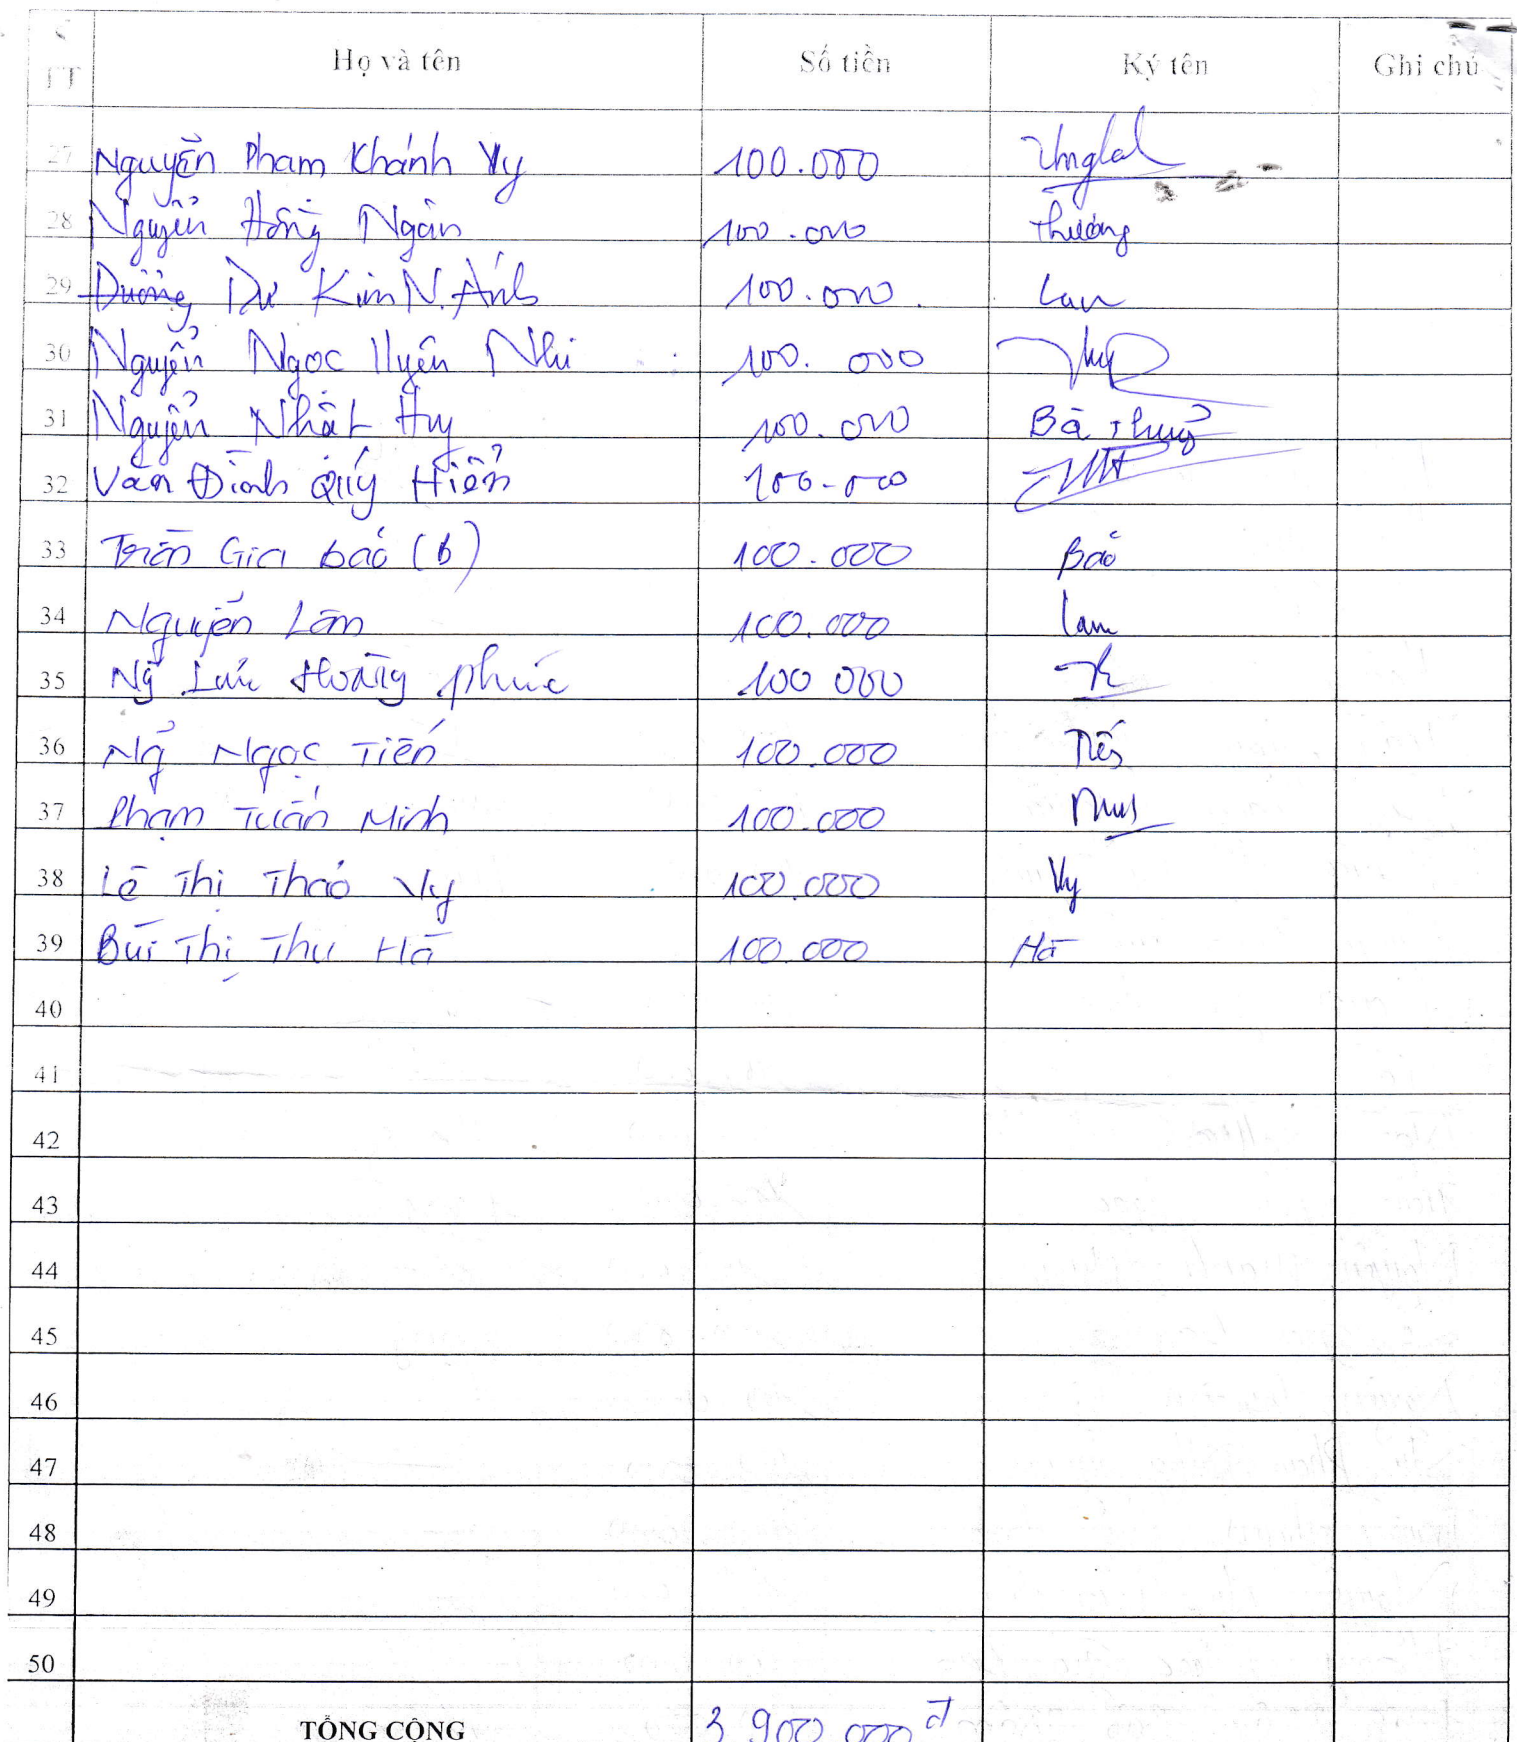 TT Họ và tên Số tiền Ký tên Ghi chú
27 Nguyễn Phạm Khánh Vy 100.000
28 Nguyễn Hồng Ngân 100.000 Thương
29 Dương Dư Kim N. Ánh 100.000 Lan
30 Nguyễn Ngọc Uyên Nhi 100.000
31 Nguyễn Nhật Huy 100.000 Bà Thuỷ
32 Văn Đình Quý Hiển 100.000
33 Trần Gia bảo (b) 100.000 Bảo
34 Nguyễn Lâm 100.000 Lam
35 Ng Lưu Hoàng phúc 100 000
36 Ng Ngọc Tiến 100.000
37 Phạm Tuấn Minh 100.000
38 Lê Thị Thảo Vy 100.000 Vy
39 Bùi Thị Thu Hà 100.000 Hà
40
41
42
43
44
45
46
47
48
49
50
TỔNG CỘNG 3 900 000 đ